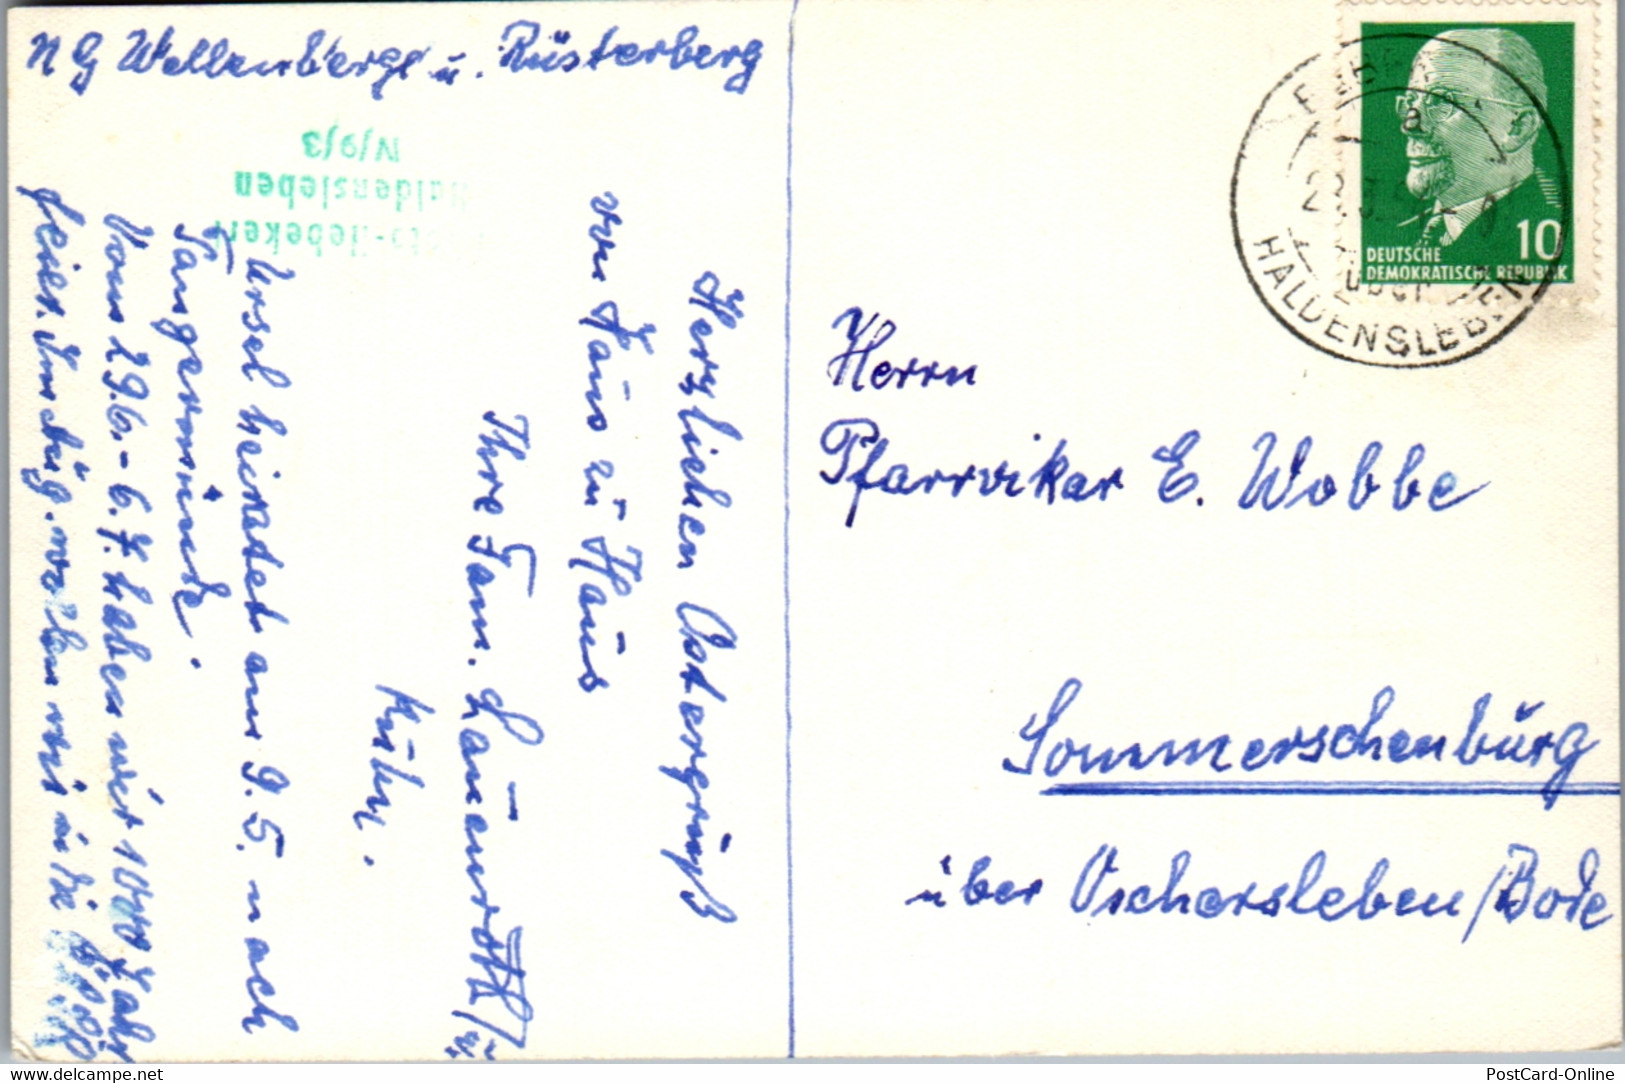 NG Wellenberge u. Rüsterberg
Herzlichen Ostergruß
von Haus zu Haus
Ihre Fam. Lauenroth / u.
Kühn.
Ursel heiratet am 9. 5. nach
Tangermünde.
Vom 29.6. - 6.7. haben wir 1000 Jahr
feier. Im Aug. wollen wir in die
Haldensleben
IV/9/3
HALDENSLEBEN
über
a
10
DEUTSCHE
DEMOKRATISCHE REPUBLIK
Herrn
Pfarrvikar E. Wobbe
Sommerschenburg
über Oschersleben/Bode
www.delcampe.net
kartengruss
PostCard-Online